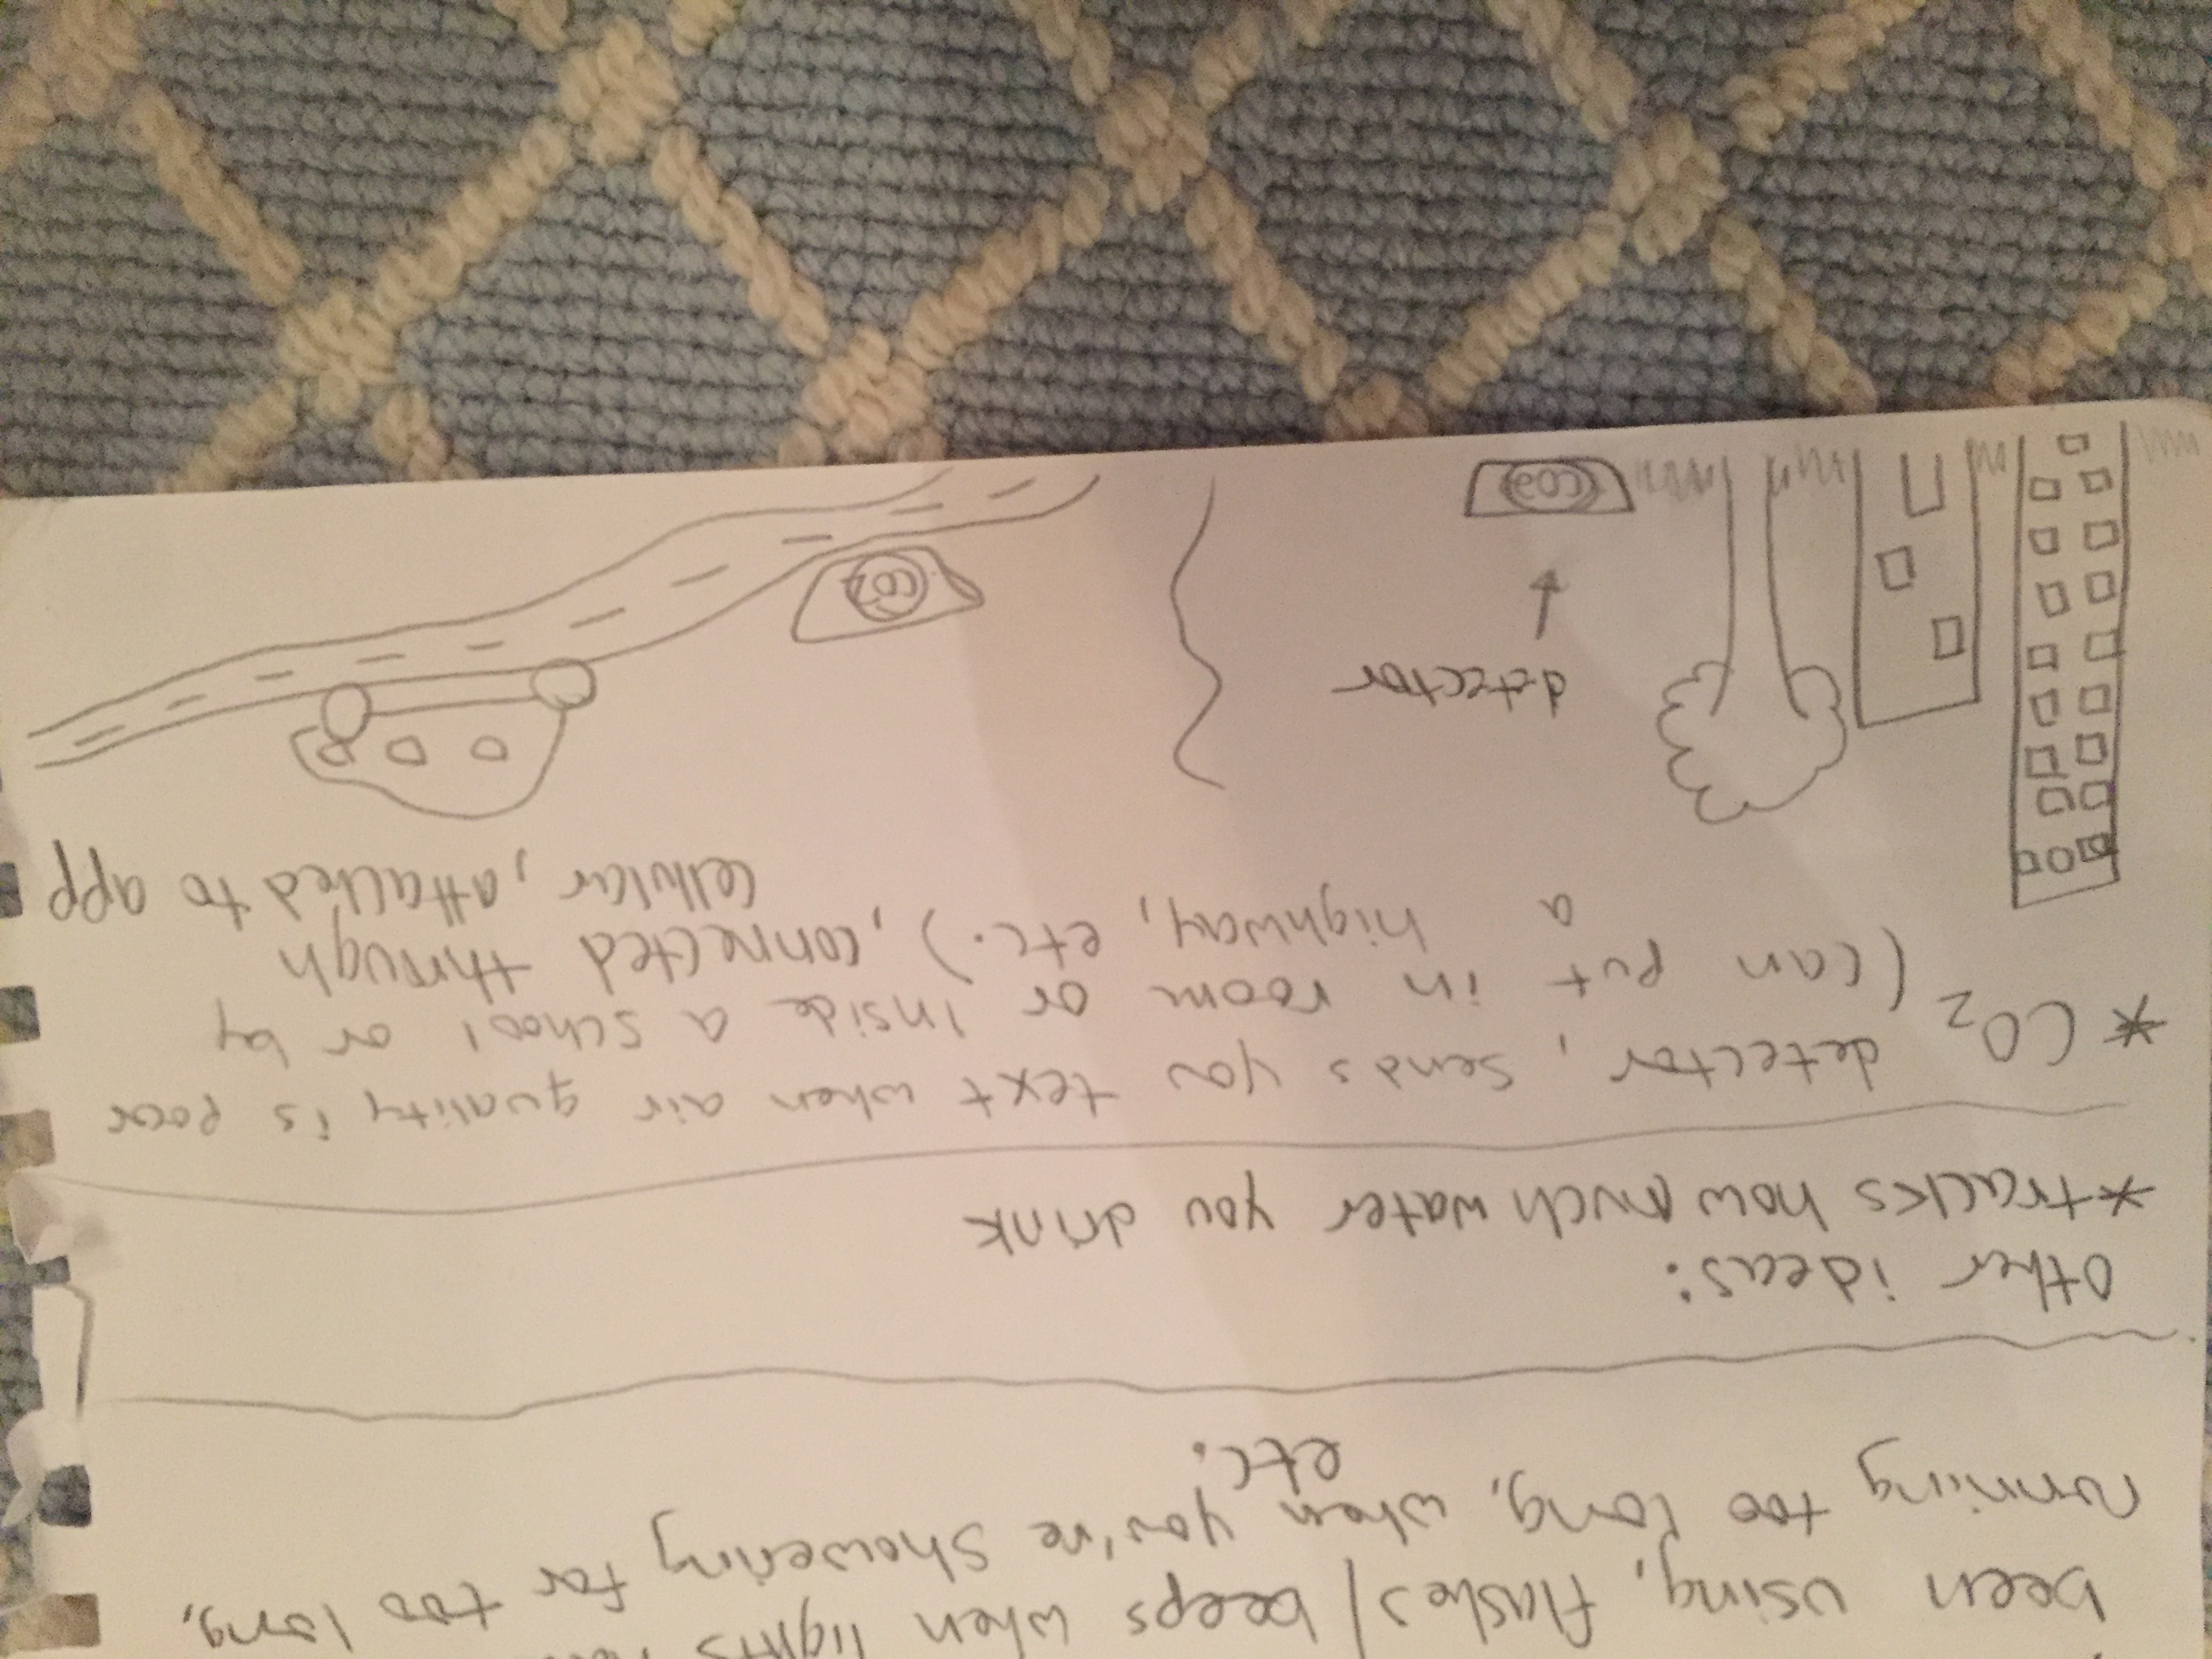 been using, flashes/beeps when lights
running too long, when you're showering for too long,
etc.
Other ideas:
*tracks how much water you drink
*CO2 detector, sends you text when air quality is poor
(can put in room or inside a school or by
a highway, etc.), connected through
cellular, attached to app
detector
CO2
CO2